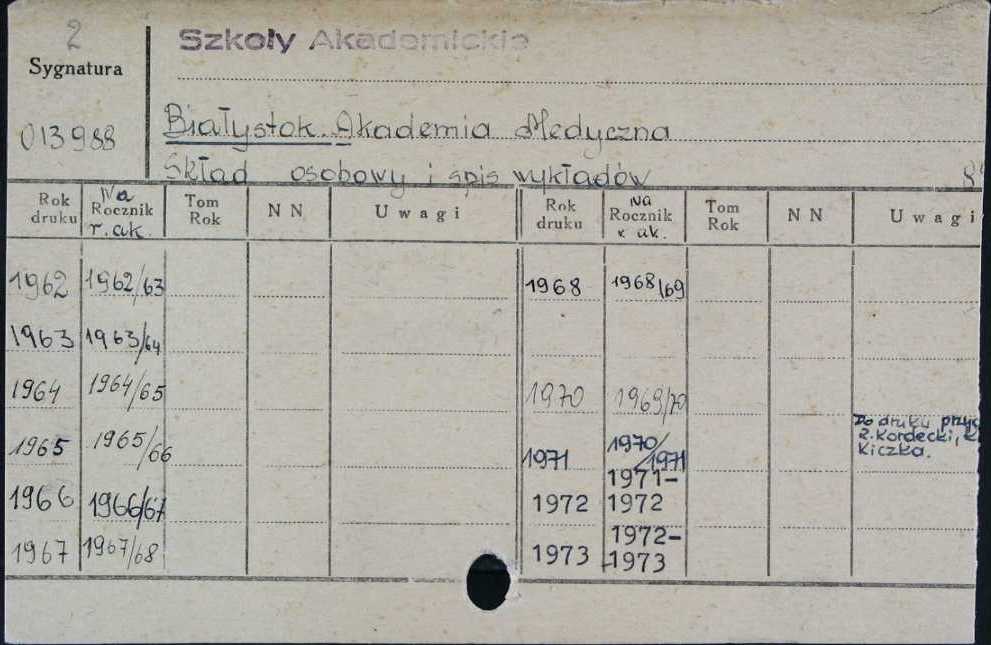 2
Szkoły Akademickie
Sygnatura
013988
Białystok. Akademia Medyczna
Skład osobowy i spis wykładów
Rok druku Na Rocznik r. ak. Tom Rok NN Uwagi Rok druku Na Rocznik r. ak. Tom Rok NN Uwagi
1962 1962/63 1968 1968/69
1963 1963/64
1964 1964/65 1970 1969/70
1965 1965/66 1971 1970/1971 Do druku
Z. Kordecki,
Kiczka.
1966 1966/67 1972 1971-1972
1967 1967/68 1973 1972-1973